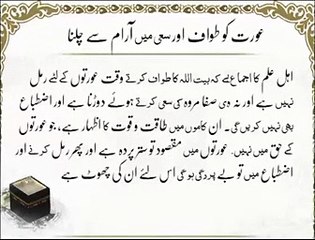 عورت کو طواف اور سعی میں آرام سے چلنا
اہل علم کا اجماع ہے کہ بیت اللہ کا طواف کرتے وقت عورتوں کے لئے رمل
نہیں ہے اور نہ ہی صفا مروہ کی سعی کرتے ہوئے دوڑنا ہے اور اضطباع
بھی نہیں کریں گی۔ ان کاموں میں طاقت و قوت کا اظہار ہے، جو عورتوں
کے حق میں نہیں۔ عورتوں میں مقصود تو ستر پردہ ہے اور پھر رمل کرنے اور
اضطباع میں تو بے پردگی ہو گی اس لئے ان کی چھوٹ ہے